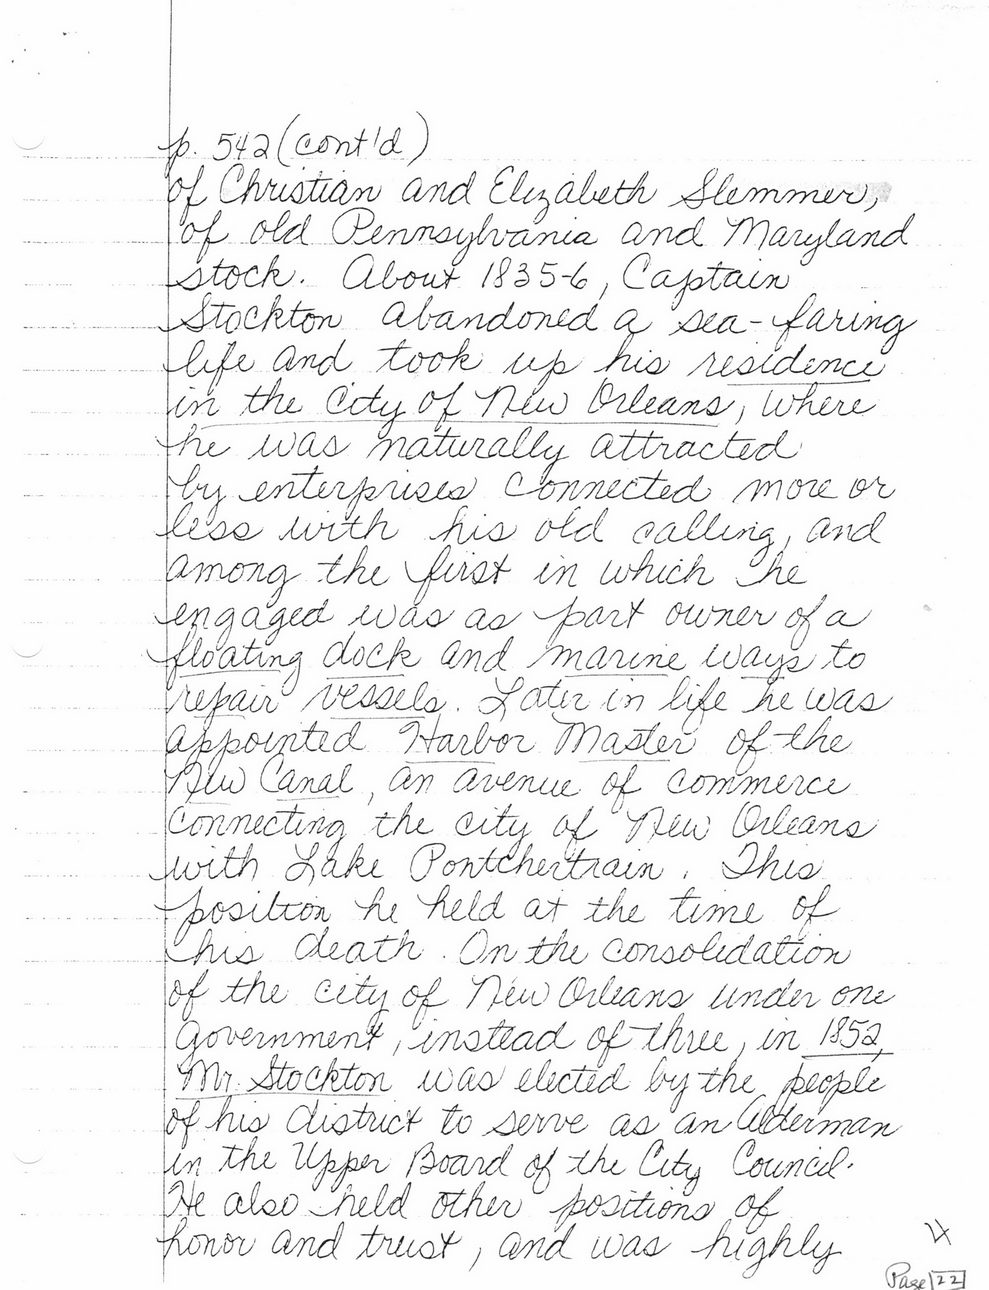 p. 542 (cont'd)
of Christian and Elizabeth Slemmer,
of old Pennsylvania and Maryland
stock. About 1835-6, Captain
Stockton abandoned a sea-faring
life and took up his residence
in the City of New Orleans, where
he was naturally attracted
by enterprises connected more or
less with his old calling, and
among the first in which he
engaged was as part owner of a
floating dock and marine ways to
repair vessels. Later in life he was
appointed Harbor Master of the
New Canal, an avenue of commerce
connecting the city of New Orleans
with Lake Pontchertrain. This
position he held at the time of
his death. On the consolidation
of the city of New Orleans under one
government, instead of three, in 1852,
Mr. Stockton was elected by the people
of his district to serve as an Alderman
in the Upper Board of the City Council.
He also held other positions of
honor and trust, and was highly
4
Page 22